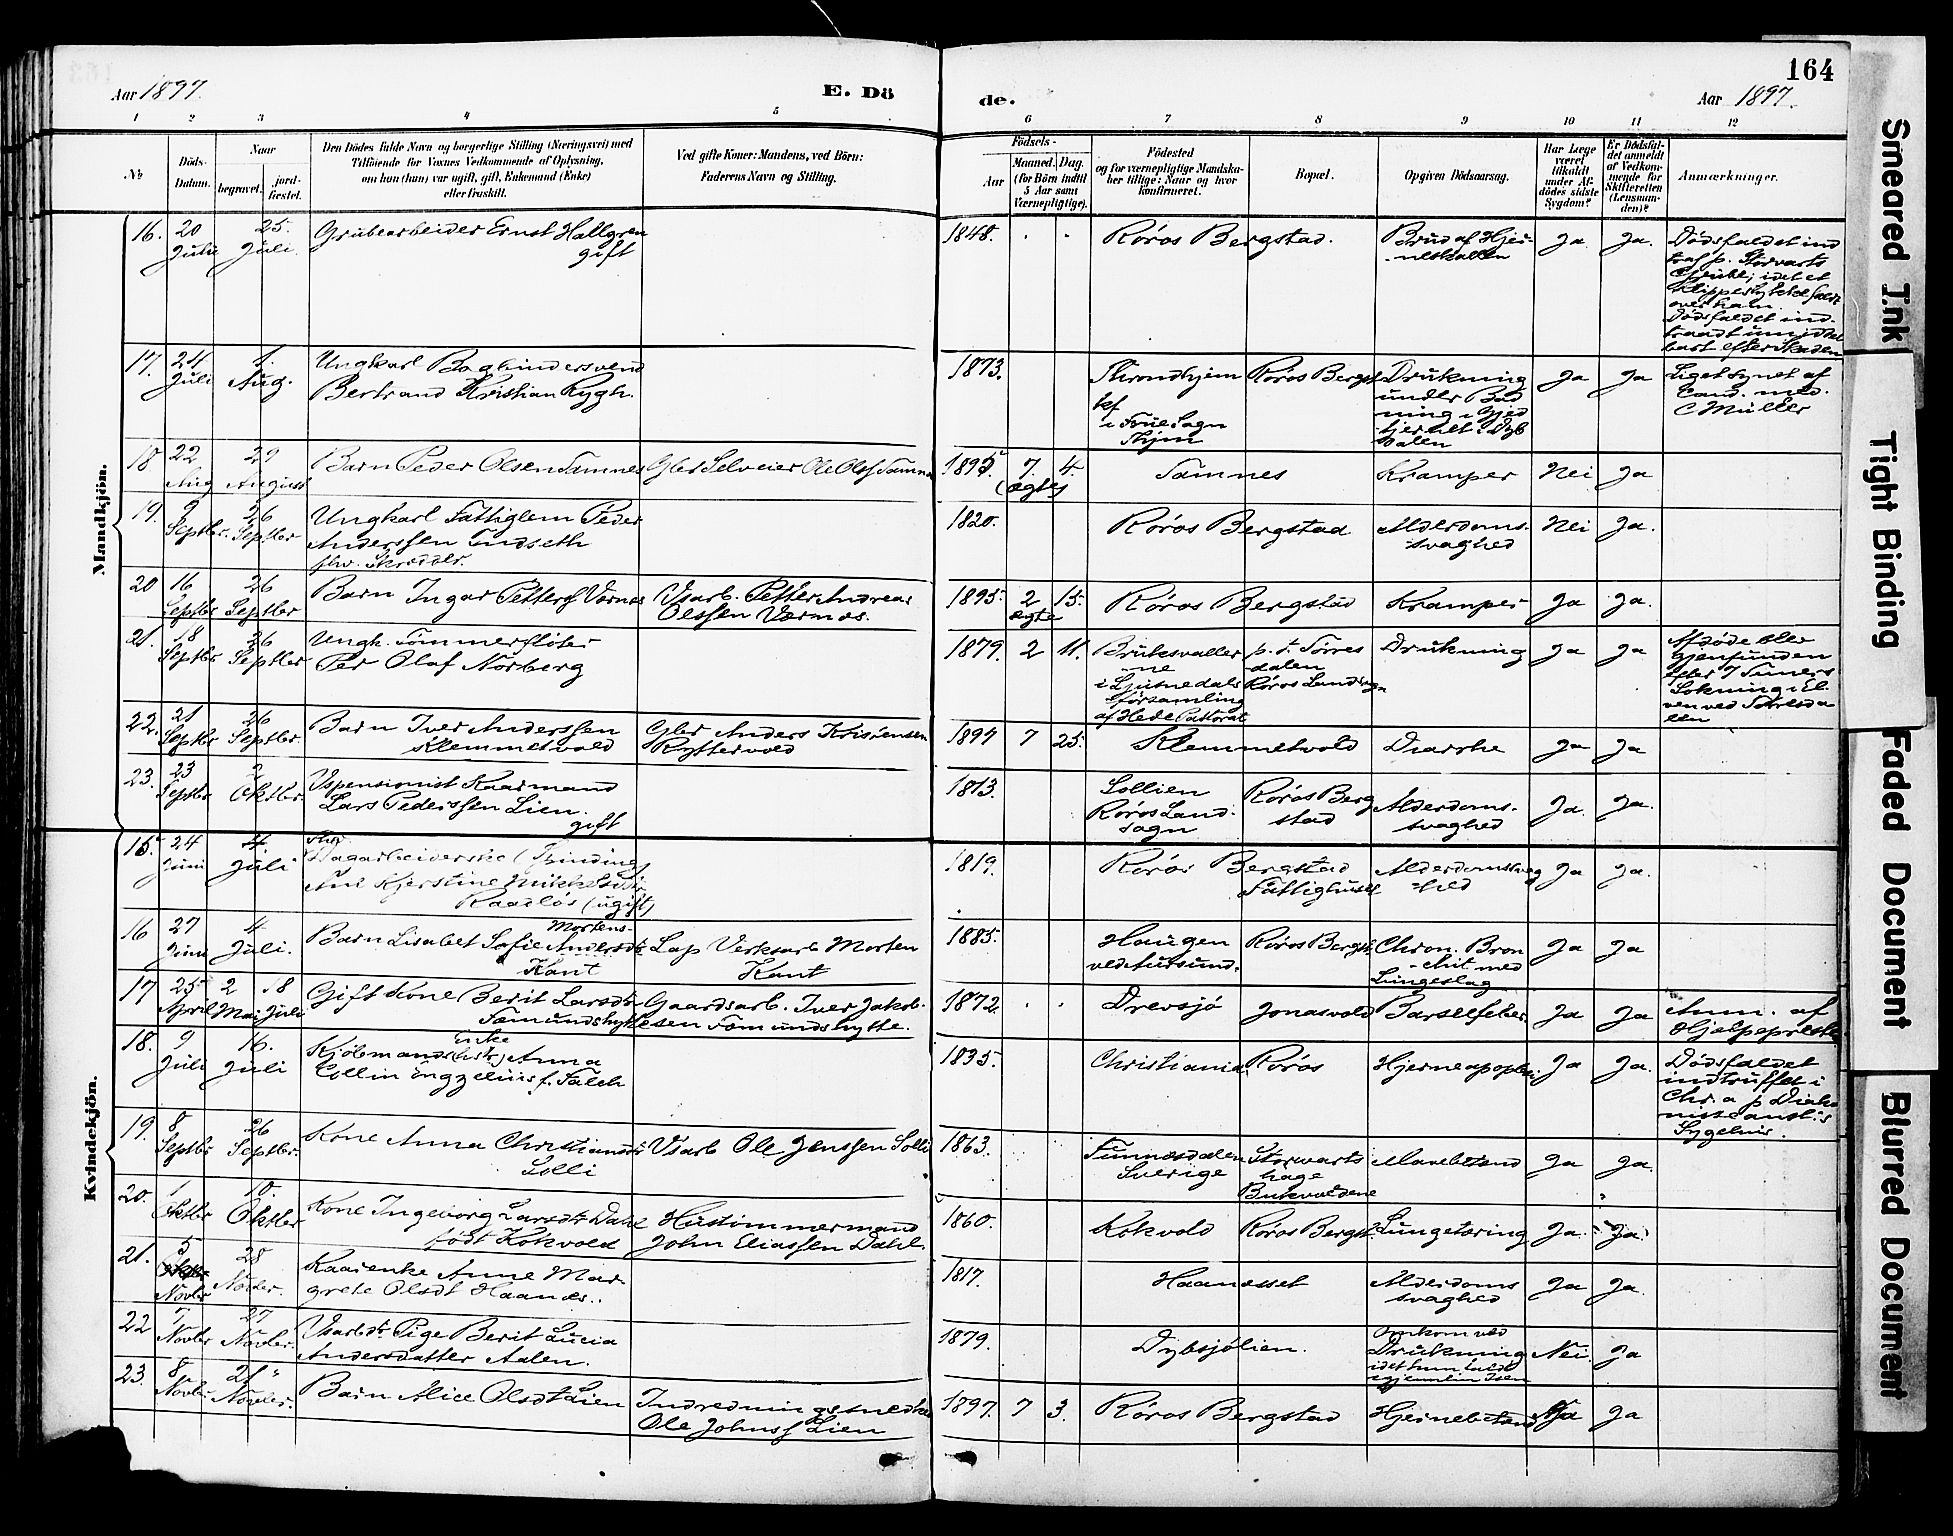 164
Aar 1897.
E. Dö
de.
Aar 1897.
1 2 3 4 5 6 7 8 9 10 11 12
No
Döds-
Datum.
Naar
begravet.
jord-
fæstet.
Den Dödes fulde Navn og borgerlige Stilling (Næringsvei) med
Tilföiende for Voxnes Vedkommende af Oplysning,
om han (hun) var ugift, gift, Enkemand (Enke)
eller fraskilt.
Ved gifte Koner: Mandens, ved Börn:
Faderens Navn og Stilling.
Födsels-
Aar
Maaned. Dag.
(for Börn indtil
5 Aar samt
Værnepligtige).
Födested
og for værnepligtige Mandska-
ber tillige: Naar og hvor
konfirmeret.
Bopæl.
Opgiven Dödsaarsag.
Har Læge
været
tilkaldt
under Af-
dödes sidste
Sygdom?
Er Dödsfal-
det anmeldt
af Vedkom-
mende for
Skifteretten
(Lensman-
den)?
Anmærkninger.
Mandkjön.
16. 20 Juli 25. Juli.
Grubearbeider Ernst Hallgren
gift
1848. Röros Bergstad.
Brud af Hjer-
neskallen
Ja. Ja.
Dödsfaldet ind
traf p. Storvarts
Grube, idet et
Klippestykke faldt
over ham
Dödsfaldet ind-
traadt umiddel
bart efter Skaden
17. 24 Juli 1. Aug.
Ungkarl Bogbindersvend
Bertrand Kristian Rygh.
1873. Throndhjem
kf.
i Frue Sogn
Thjem
Röros Bergst
Drukning
under Bad
ning i Gjed
tjernet i Dyb
dalen
Ja Ja
Liget synet af
Cand. med.
C Müller
18 22 Aug 29 August
Barn Peder Olsen Samnes
Gbr Selveier Ole Olsf Samnes
1895. 7. 4.
(ægte)
Samnes Kramper Nei Ja
19. 9 Septbr. 26 Septber
Ungkarl Fattiglem Peder
Anderssen Tindseth
fhv. Skrædder.
1820. Röros Bergstad
Alderdoms-
svaghed
Nei Ja.
20 16 Septbr 26 Septbr
Barn Ingar Pettersf Værnes
Vsarb. Petter Andreas
Olssen Værnes.
1895. 2 15.
ægte
Röros Bergstad Kramper Ja Ja.
21. 18 Septbr 26 Septber
Ungk. Tömmerflöter
Per Olaf Norberg
1879. 2 11.
Bruksvaller
-ne
i Ljusnedals
församling
af Hede Pastorat
p. t. Torres
dalen
Röros Landsogn
Drukning Ja Ja
Afdöde blev
gjenfunden
efter 7 Timers
Sökning i El-
ven ved Torresda
len
22. 21 Septbr 26 Septbr.
Barn Iver Anderssen
Klemmetvold
Gbr Anders Kristensen
Ryttervold
1894 7 25. Klemmetvold Diarrhe Ja Ja
23. 23 Septbr 2 Oktbr.
Vspensionist Kaarmand
Lars Pederssen Lien.
gift
1813. Sollien
Röros Land-
sogn
Röros Berg
stad
Alderdoms-
svaghed
Ja. Ja.
Kvindekjön.
15. 24 Juni 4. Juli
Dagarbeiderske (Spinding)
Ane Kjerstine Mikkelsdtr
Raadlös (ugift)
1819. Röros Bergstad
Fattighuset
Alderdomssvag
-hed
Ja Ja.
16 27 Juni 4 Juli.
Mortens-
Barn Lisabet Sofie Andersdtr
Kant
Lap Verksarb Morten
Kant
1885. Haugen
ved Aursund.
Röros Bergst.
Chron. Bron
-chit med
Lungeslag
Ja Ja
17 25 April 2 Mai 18 Juli
Gift Kone Berit Larsdtr
Fæmundshytte
Gaardsarb. Iver Jakob-
sen Fæmundshytte.
1872. Drevsjö Jonasvold Barselfeber Ja Ja
Anm. af
Hjelpeprest
18. 9 Juli 16. Juli
Enke
Kjöbmands(hstr) Anna
Collin Engzelius f. Falch
1835. Christiania. Röros Hjerneapoplexi Ja Ja.
Dödsfaldet
indtruffet i
Chr.a p Diako
nisseanst:s
Sygehus.
19. 8 Septbr 26 Septbr.
Kone Anna Christiansdtr
Solli
Vsarb Ole Jenssen Solli
1863. Funnesdalen
Sverige
Storvarts
hage
Bukvoldene
Mavebetænd Ja Ja.
20. 1 Oktbr 10. Oktber
Kone Ingeborg Larsdtr Dahl
födt Kokvold
Hustömmermand
John Eliassen Dahl.
1860. Kokvold Röros Bergst. Lungetæring Ja. Ja.
21. 5 Novbr 28 Novber.
Kaarenke Anne Mar
grete Olsdt Haanes.
1817. Haanesset
Alderdoms
svaghed
Ja Ja.
22 7 Novbr 27 Novbr.
Vsarbdr. Pige Berit Lucia
Andersdatter Aalen.
1879. Dybsjölien.
Omkom ved
Drukning
idet hun faldt
igjennem Isen
Nei. Ja
23. 8 Novbr 21 Novber.
Barn Alice Olsdt Lien
Indredningssnedker
Ole Johnsf Lien
1897. 7 3. Röros Bergstad Hjernebetænd Ja Ja
Smeared Ink
Tight Binding
Faded Document
Blurred Document